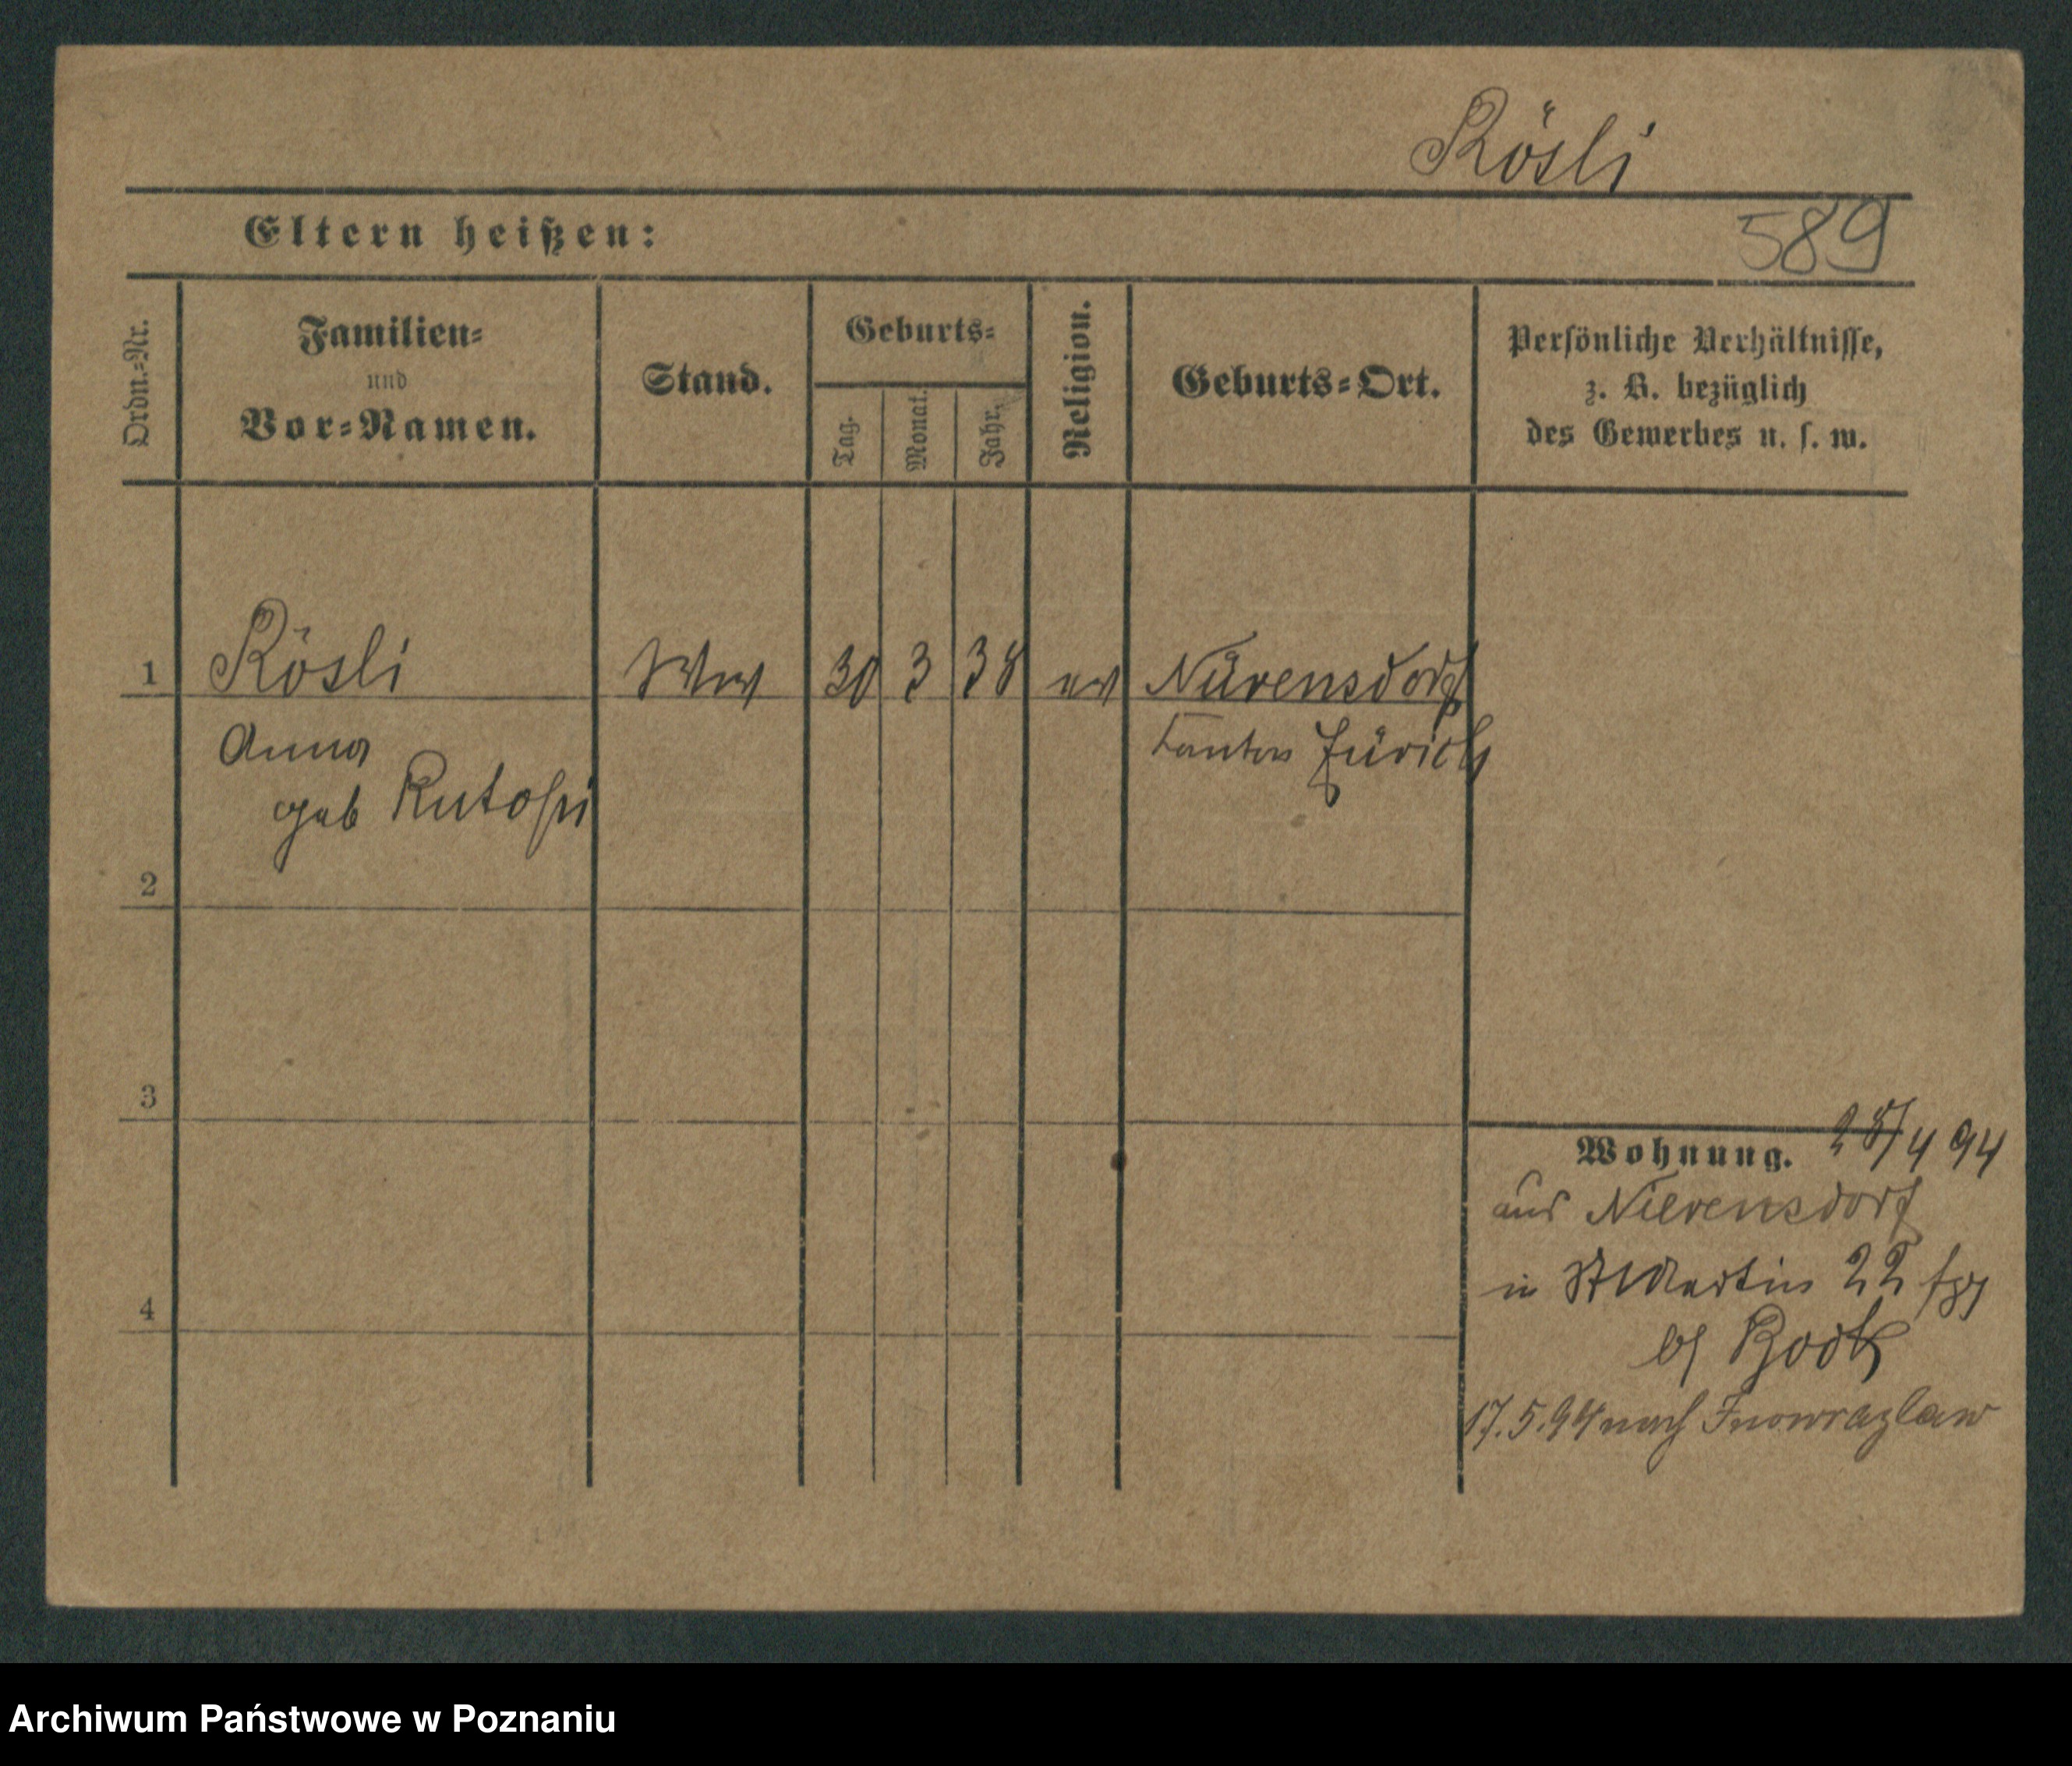 Rösli
Eltern heißen:
589
Ordn.-Nr.
Familien-
und
Vor-Namen.
Stand.
Geburts-
Tag.
Monat.
Jahr.
Religion.
Geburts-Ort.
Persönliche Verhältnisse,
z. B. bezüglich
des Gewerbes u. s. w.
1 Rösli Ww 30 3 38 ev Nürensdorf
Anna Kanton Zürich
geb
2
3
4
Wohnung. 28/4 94
aus Nüerensdorf
in St Martin 22
b/
17.5.94 nach Inowrazlaw
Archiwum Państwowe w Poznaniu